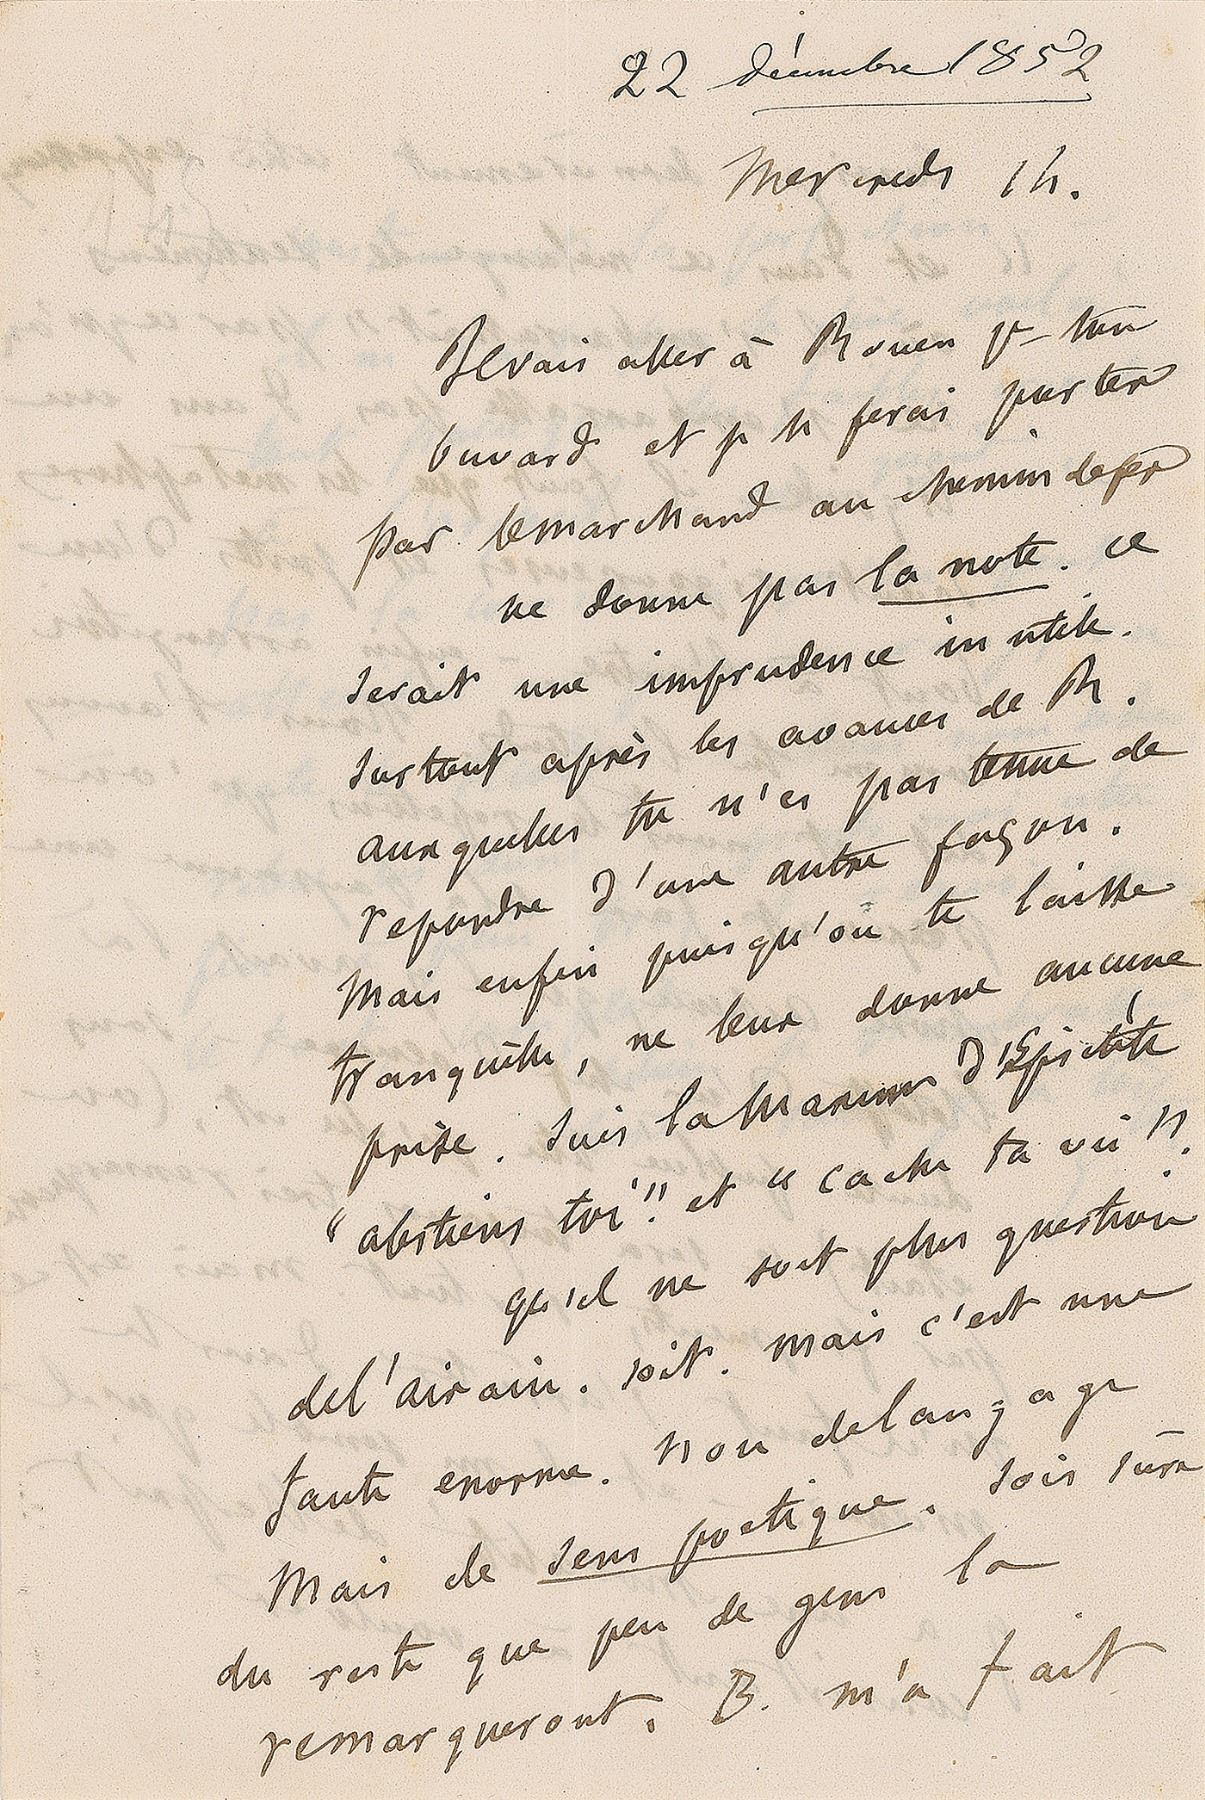 22 décembre 1852
Mercredi 1 h.
Je vais aller à Rouen pr ton
buvard et je le ferai porter
par le marchand au chemin de fer
ne donne pas la note. ce
serait une imprudence inutile.
surtout après les avances de R.
auxquelles tu n'es pas tenue de
repondre d'une autre façon.
Mais enfin puisqu'on te laisse
tranquille, ne leur donne aucune
prise. suis la maxime d'Epictète
"abstiens toi". et "cache ta vie".
qu'il ne soit plus question
de l'airain. soit. mais c'est une
faute enorme. non de langage
mais de sens poetique. sois sûre
du reste que peu de gens la
remarqueront. B. m'a fait